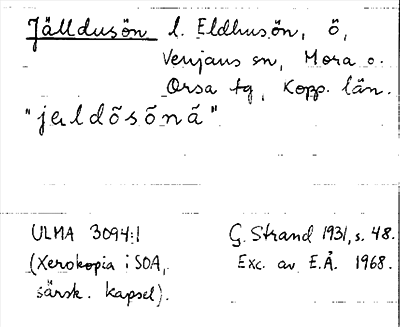 Jälldusön l. Eldhusön, ö,
Venjans sn, Mora o.
Orsa tg, Kopp. län.
"jældõsõnã"
ULMA 3094:1
(Xerokopia i SOA,
särsk. kapsel).
G. Strand 1931, s. 48.
Exc. av E.Å. 1968.